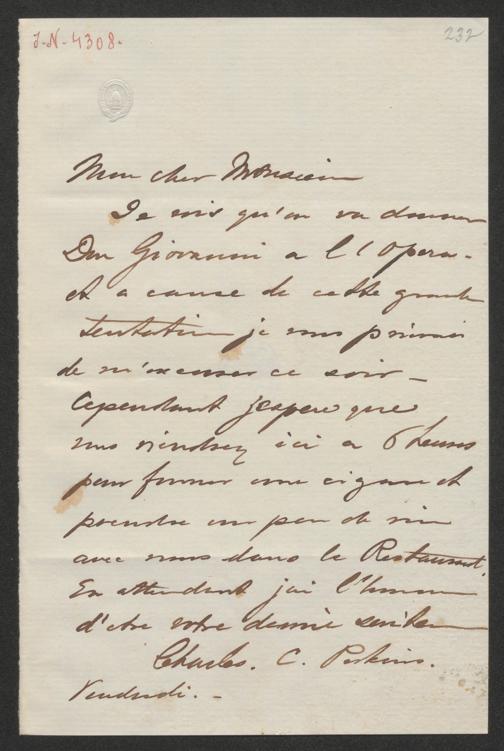 I.N. 4308.
232
Mon cher Monsieur
Je vois qu'on va donner
Don Giovanni a l'Opera -
et a cause de cette grande
tentation je vous prierais
de m'excuser ce soir -
Cependant j'espere que
vous viendrez ici a 6 heures
pour fumer une cigare et
prendre un peu de vin
avec nous dans le Restaurant.
En attendant j'ai l'honneur
d'etre votre devoué serviteur
Charles. C. Perkins.
Vendredi. -